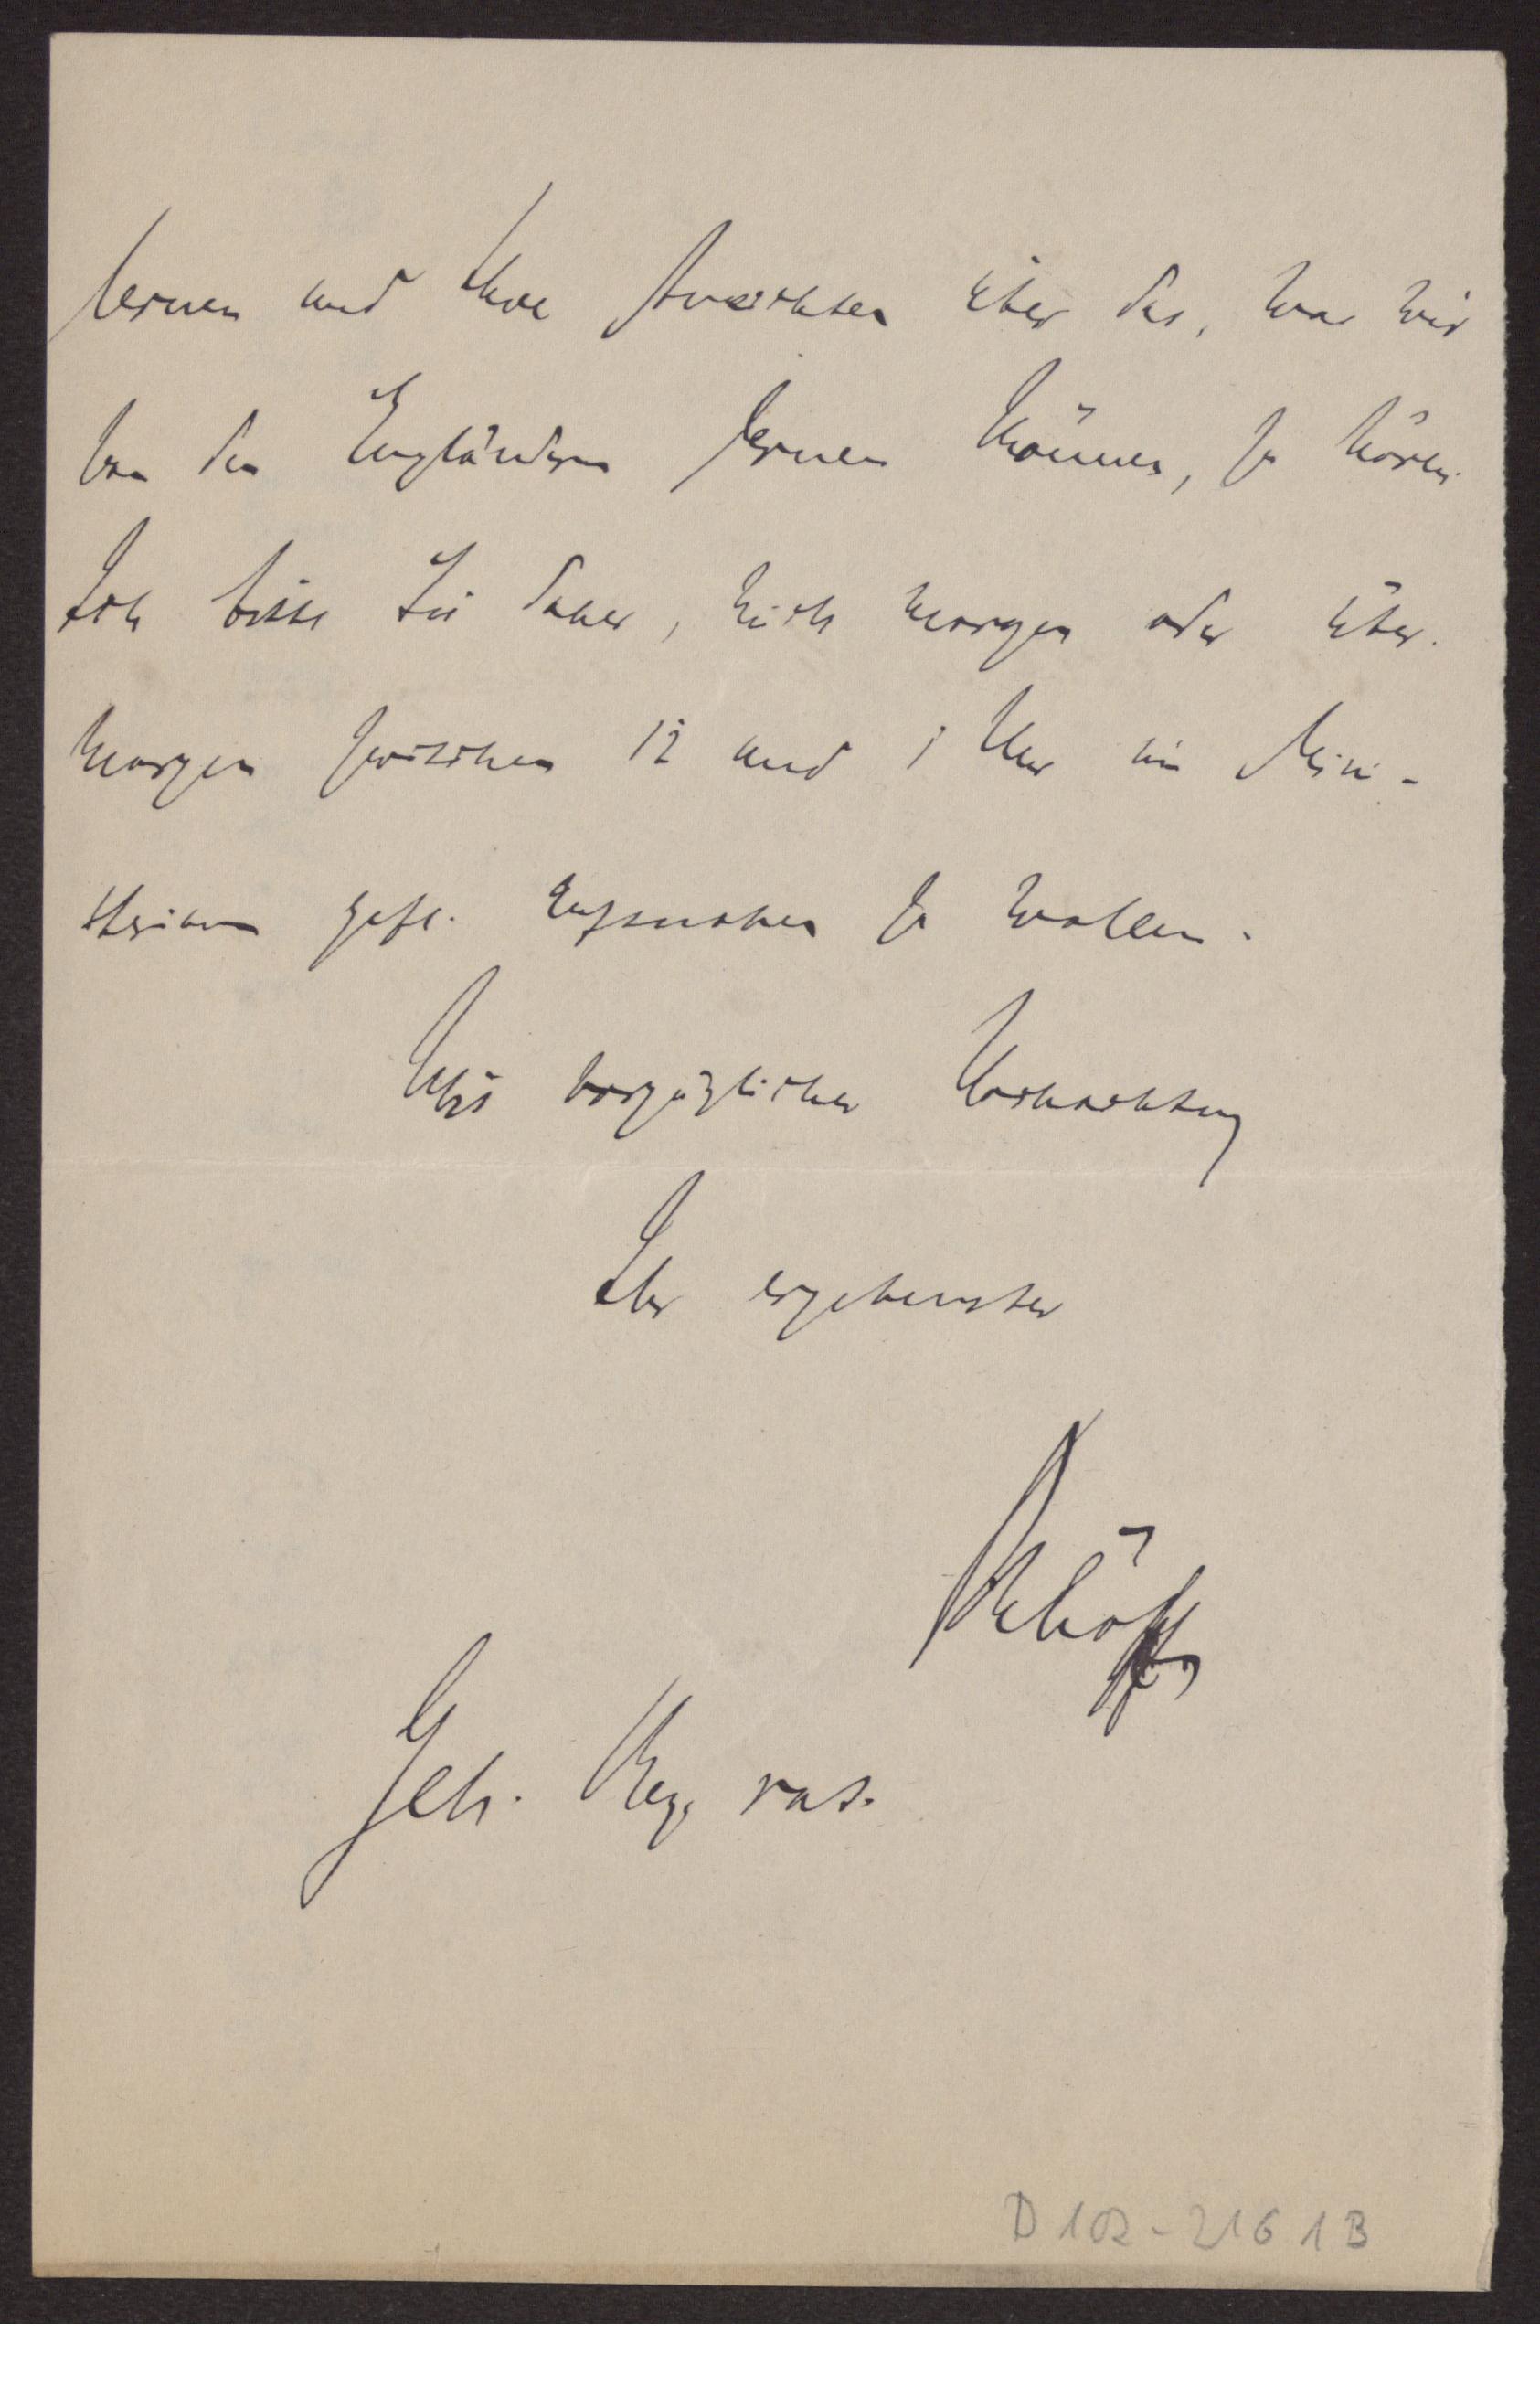 lernen und Ihre Ansichten über das, was wir
von den Engländern lernen können, zu hören.
Ich bitte Sie daher, mich morgen oder über-
morgen zwischen 12 und 1 Uhr im Mini-
sterium gefl. aufsuchen zu wollen.
Mit vorzüglicher Hochachtung
Ihr ergebenster
Geh. Reg. rat.
D 102 - 216 1 B